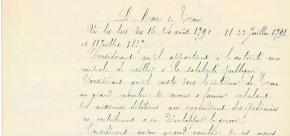 Le Maire de Trun
Vu les lois des 16-24 août 1790 : 18-22 Juillet 1791
et 18 Juillet 1837
Considérant qu'il appartient à l'autorité mu
nicipale de veiller à la salubrité publique
Considérant qu'il existe dans
un grand nombre de mares à fumier exhalant
des miasmes délétères qui engendrent des épidémies
ou contribuent à en développer le germe
Considérant qu'un grand nombre de ces mares